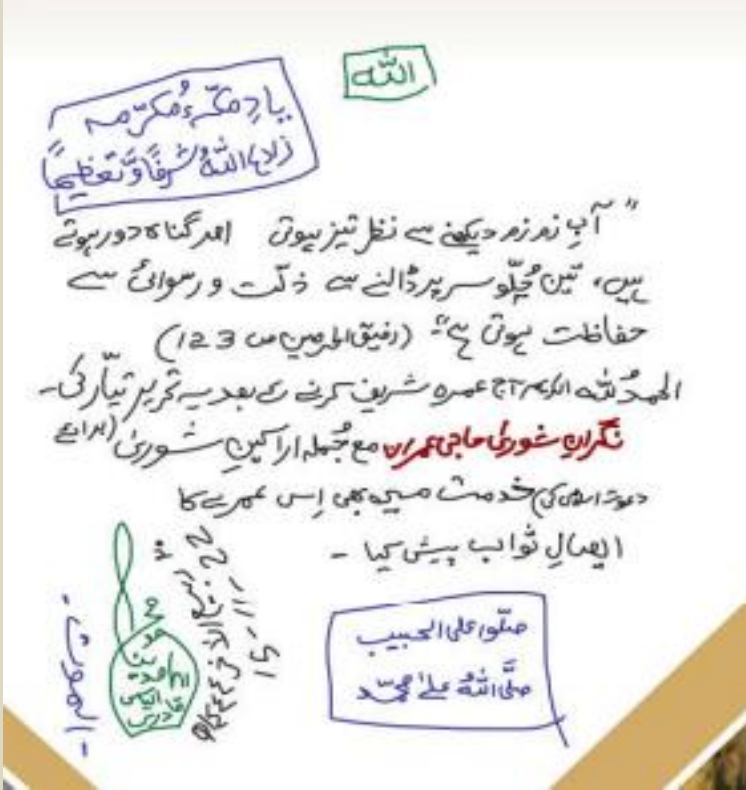 اللّٰه
یادِ مکّۂ مُکرّمہ
زادہا اللّٰهُ شرفًا وَّ تعظیمًا
"آبِ زم زم دیکھنے سے نظر تیز ہوتی اور گناہ دور ہوتے
ہیں، تین چُلّو سر پر ڈالنے سے ذلّت و رسوائی سے
حفاظت ہوتی ہے" (رفیق الحرمین ص 123)
الحمدُ للّٰه الکریم آج عمرہ شریف کرنے کے بعد یہ تحریر تیّار کی۔
نگرانِ شوریٰ حاجی عمران مع جُملہ اراکینِ شوریٰ (برائے
دعوتِ اسلامی) کی خدمت میں بھی اِس عمرے کا
ایصالِ ثواب پیش کیا ۔
صلّوا علی الحبیب
صلَّی اللّٰهُ علیٰ محمّد
محمد الیاس قادری
ربیع الآخر ١٤٤٤ھ
15-11-22
الموت۔